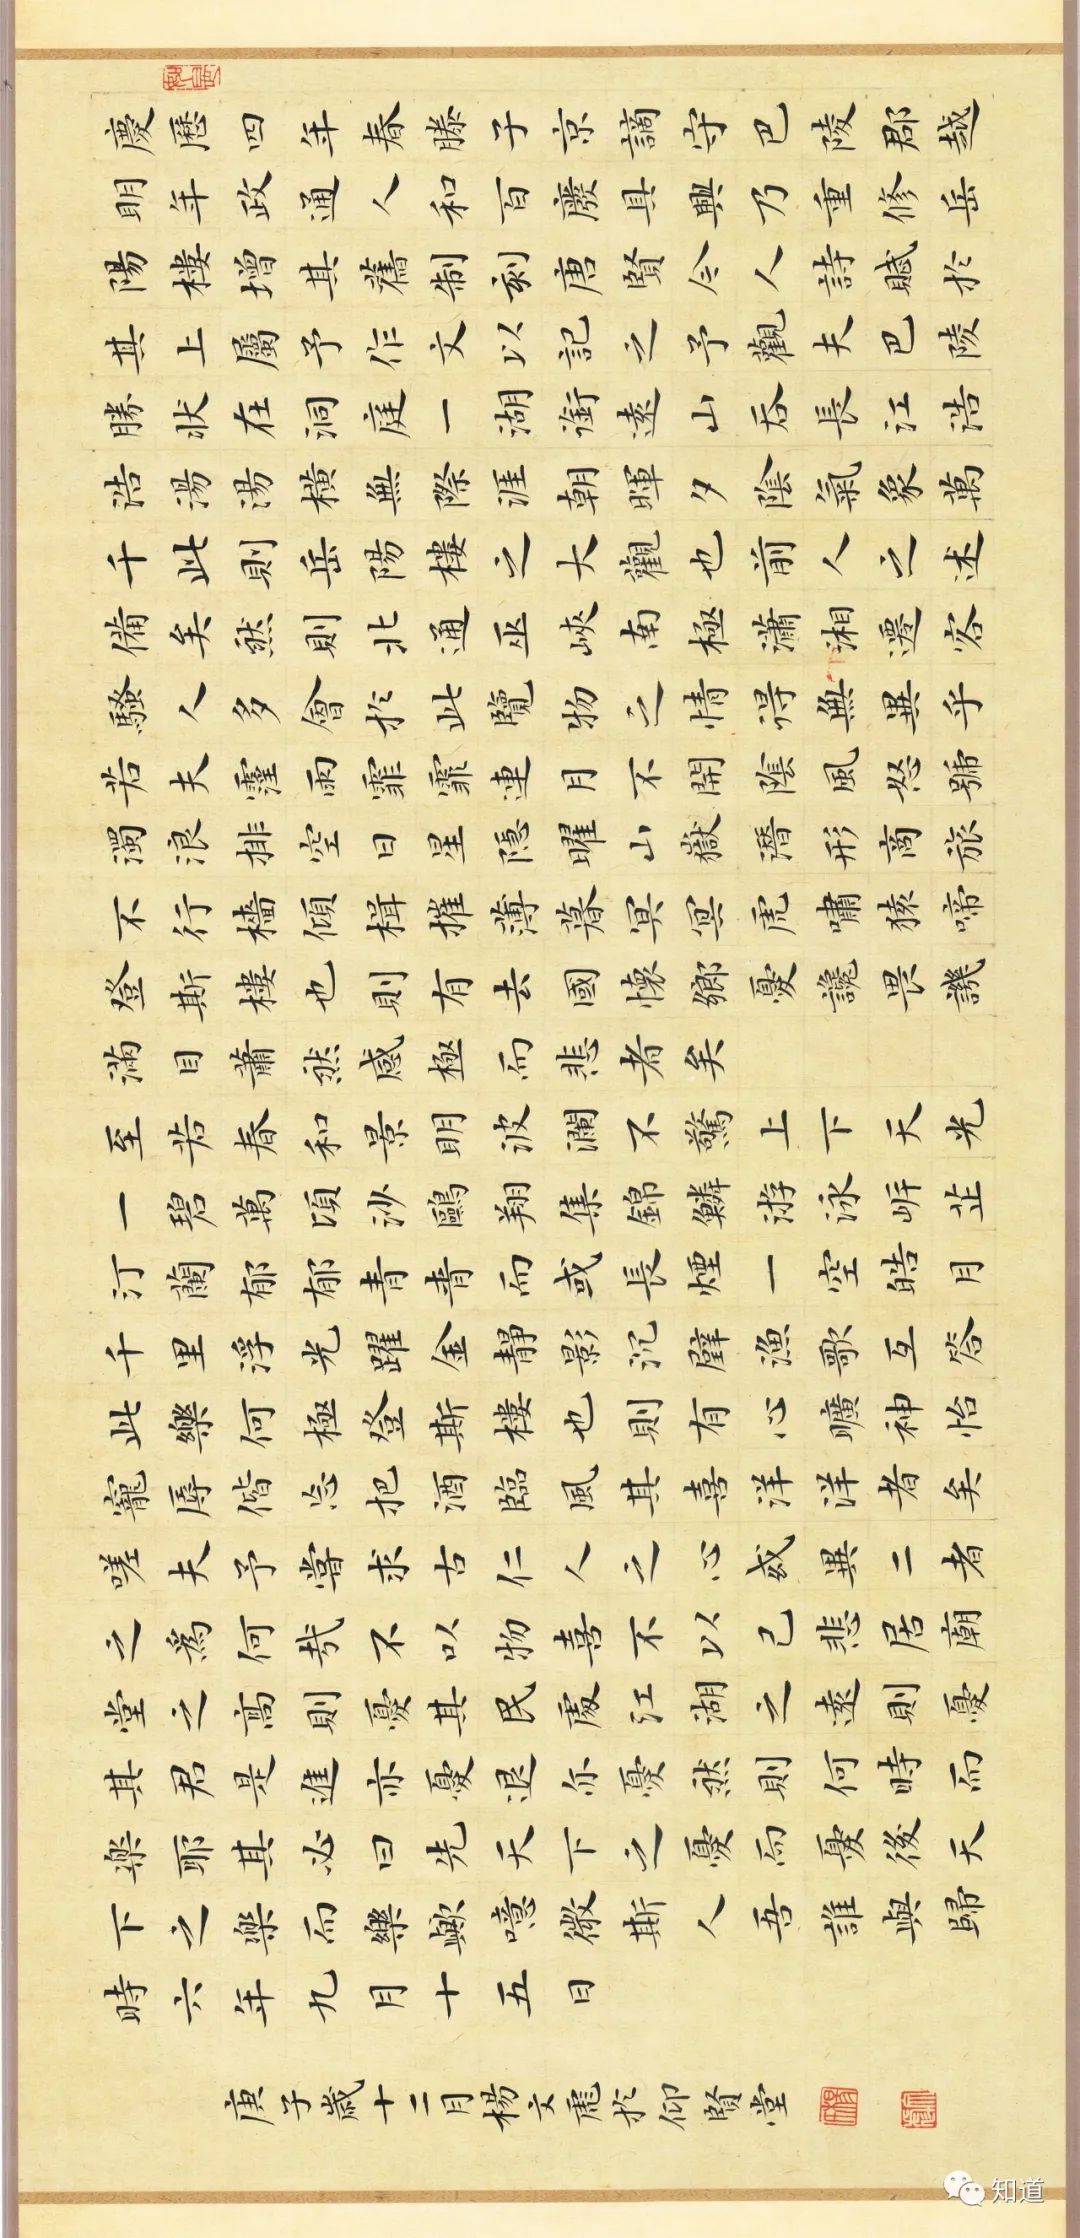 慶歷四年春滕子京謫守巴陵郡越
明年政通人和百廢具興乃重修岳
陽樓增其舊制刻唐賢今人詩賦於
其上屬予作文以記之予觀夫巴陵
勝狀在洞庭一湖銜遠山吞長江浩
浩湯湯橫無際涯朝暉夕陰氣象萬
千此則岳陽樓之大觀也前人之述
備矣然則北通巫峽南極瀟湘遷客
騷人多會於此覽物之情得無異乎
若夫霪雨霏霏連月不開陰風怒號
濁浪排空日星隱曜山嶽潛形商旅
不行檣傾楫摧薄暮冥冥虎嘯猿啼
登斯樓也則有去國懷鄉憂讒畏譏
滿目蕭然感極而悲者矣
至若春和景明波瀾不驚上下天光
一碧萬頃沙鷗翔集錦鱗游泳岸芷
汀蘭郁郁青青而或長煙一空皓月
千里浮光躍金靜影沉璧漁歌互答
此樂何極登斯樓也則有心曠神怡
寵辱偕忘把酒臨風其喜洋洋者矣
嗟夫予嘗求古仁人之心或異二者
之爲何哉不以物喜不以己悲居廟
堂之高則憂其民處江湖之遠則憂
其君是進亦憂退亦憂然則何時而
樂耶其必曰先天下之憂而憂後天
下之樂而樂歟噫微斯人吾誰與歸
時六年九月十五日
庚子歲十二月楊文虎於仰賢堂
知道